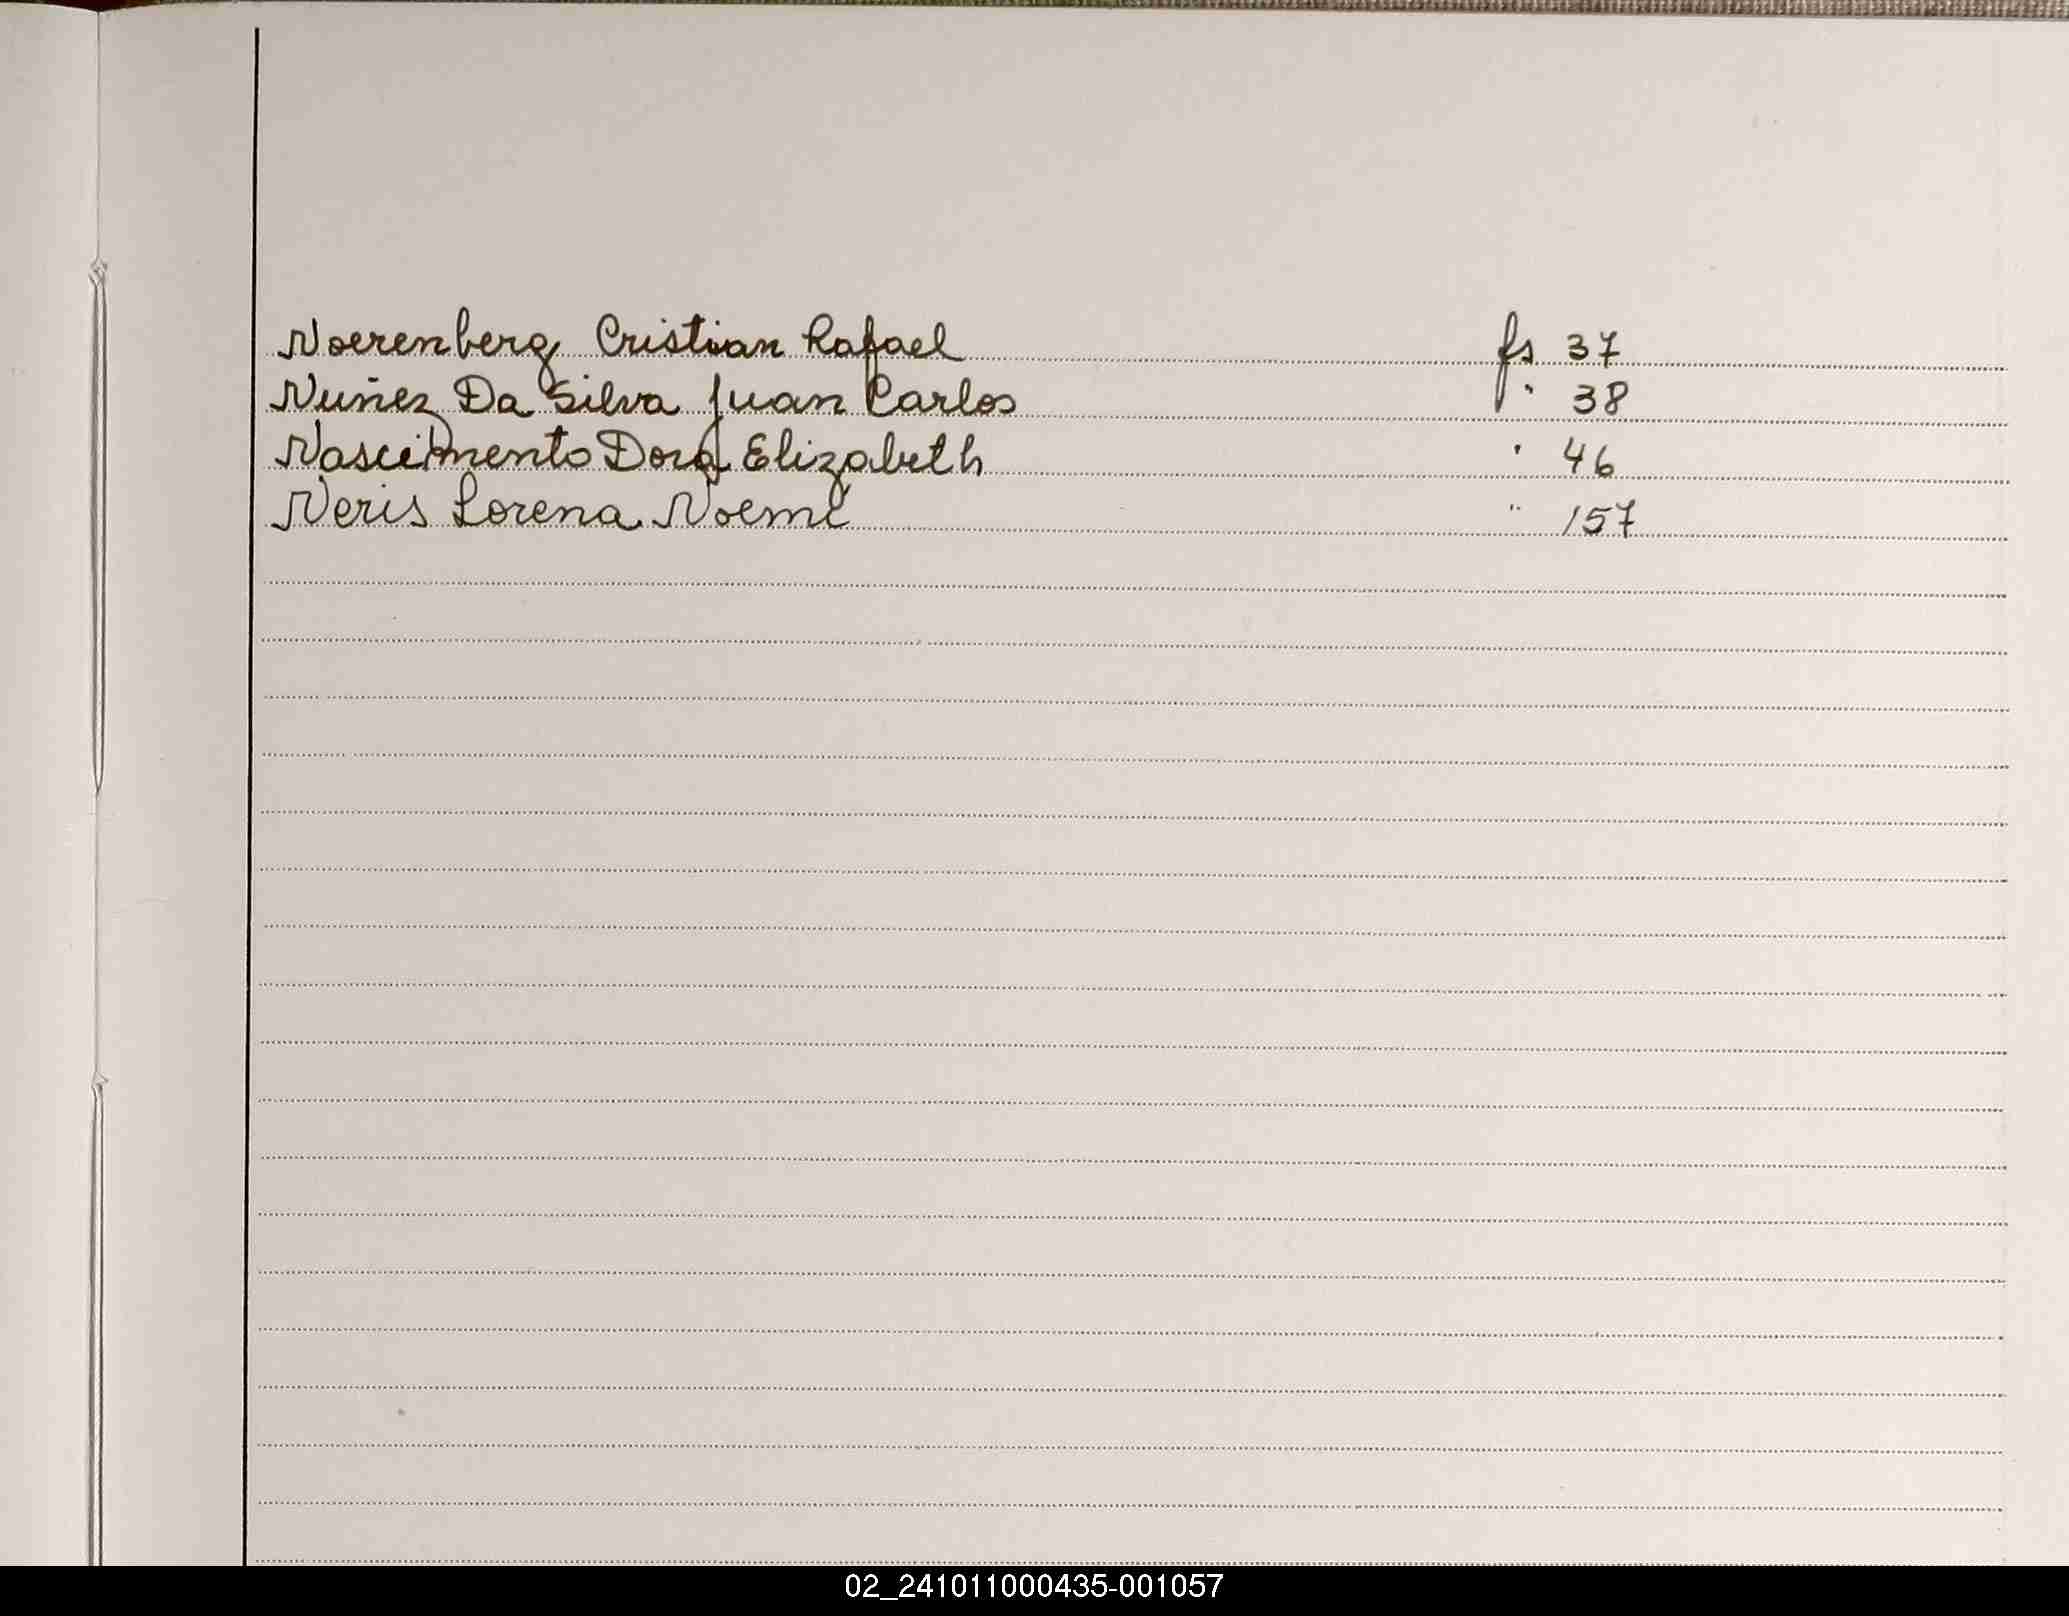 Noerenberg Cristian Rafael fs 37
Nuñez Da Silva Juan Carlos " 38
Nascimento Dora Elizabeth " 46
Neris Lorena Noemí " 157
02_241011000435-001057